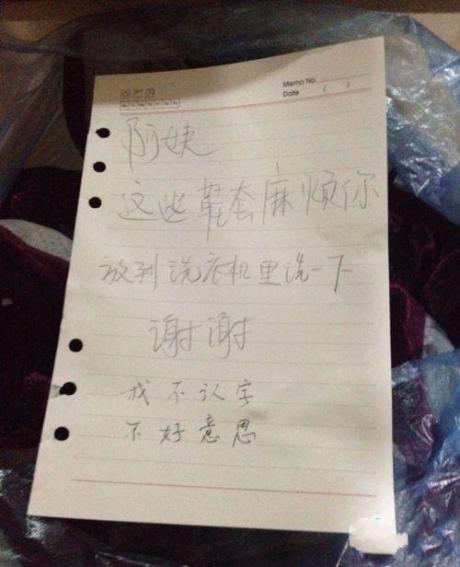 Memo No.
Date / /
阿姨
这些鞋套麻烦你
放到洗衣机里洗一下
谢谢
我不认字
不好意思